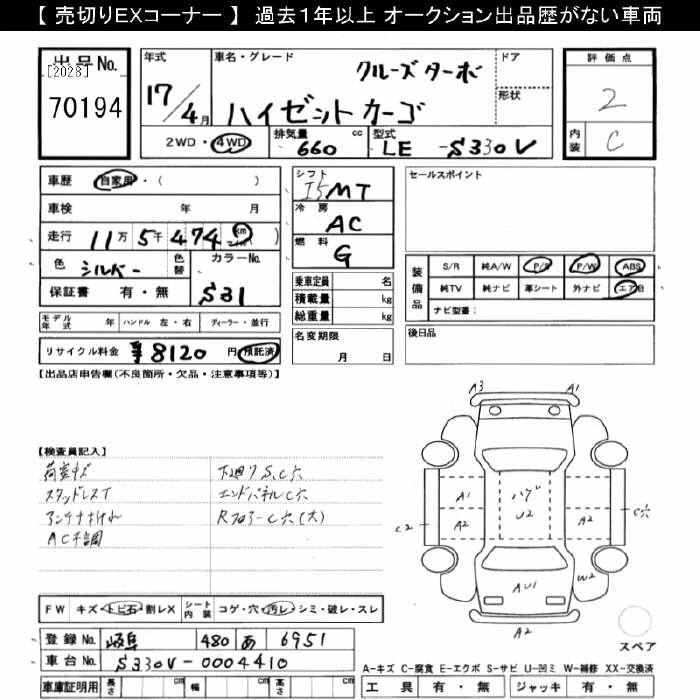 【 売切りEXコーナー 】 過去１年以上 オークション出品歴がない車両
出品No.
[2028]
70194
年式
17/4月
車名・グレード
クルーズターボ
ハイゼットカーゴ
ドア
形状
評価点
2
内装
C
2WD・4WD
排気量
660 cc
型式
LE -S330V
車歴 自家用・( )
車検 年 月
走行 11万5千474 km
色 シルバー
色替
カラーNo.
S31
保証書 有・無
シフト
I5MT
冷房
AC
燃料
G
乗車定員 名
積載量 kg
総重量 kg
名変期限
月 日
セールスポイント
装備品
S/R 純A/W P/S P/W ABS
純TV 純ナビ 革シート 外ナビ エアB
ナビ型番:
後日品
モデル年式 年 ハンドル 左・右 ディーラー・並行
リサイクル料金 ¥8120 円 預託済
【出品店申告欄(不良箇所・欠品・注意事項等)】
【検査員記入】
荷室キズ
スタッドレスT
アンテナオレ
AC不調
下廻りS,C穴
エンドパネルC穴
RフロアーC穴(大)
A3
A1
A1
ハゲ
U2
A2
A2
C2
C穴
W2
AU1
A2
スペア
FW キズ・トビ石・割レX
シート内装 コゲ・穴・汚レ・シミ・破レ・スレ
登録No. 岐阜 480 あ 6951
車台No. S330V-0004410
車庫証明用 長さ cm 幅 cm 高さ cm
A-キズ C-腐食 E-エクボ S-サビ U-凹ミ W-補修 XX-交換済
工具 有・無 ジャッキ 有・無